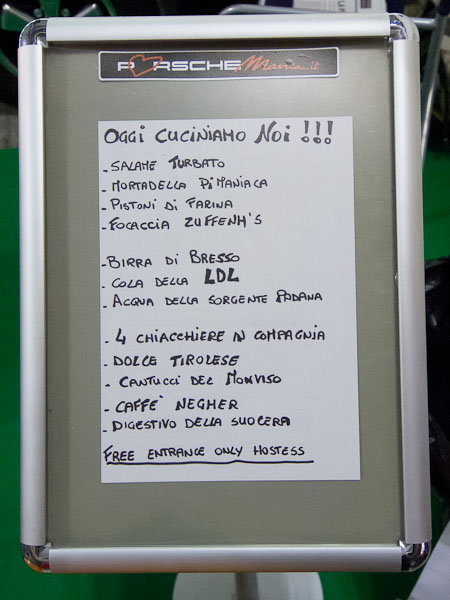 PORSCHE Mania.it
OGGI CUCINIAMO NOI !!!
- SALAME TURBATO
- MORTADELLA PIMANIACA
- PISTONI DI FARINA
- FOCACCIA ZUFFENH'S
- BIRRA DI BRESSO
- COLA DELLA LDL
- ACQUA DELLA SORGENTE PADANA
- 4 CHIACCHIERE IN COMPAGNIA
- DOLCE TIROLESE
- CANTUCCI DEL MONVISO
- CAFFE' NEGHER
- DIGESTIVO DELLA SUOCERA
FREE ENTRANCE ONLY HOSTESS